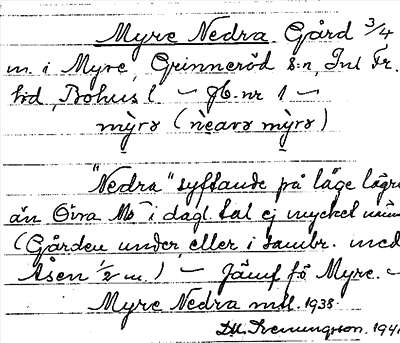 Myre Nedra Gård 3/4
m. i Myre, Grinneröd s:n, Inl Fr.
hd, Bohus l – Jb. nr 1 –
mỳrə (nèavrə mỳrə)
"Nedra" syftande på läge lägre
än Övra M– i dagl. tal ej mycket
(Gården under, eller i sambr. med
Åsen 1/2 m.) – Jämf fö Myre. –
Myre Nedra mtl. 1938.
1941